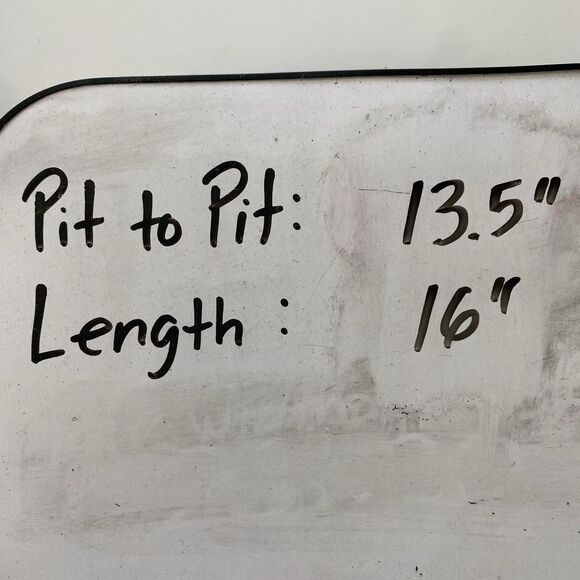 Pit to Pit: 13.5"
Length : 16"